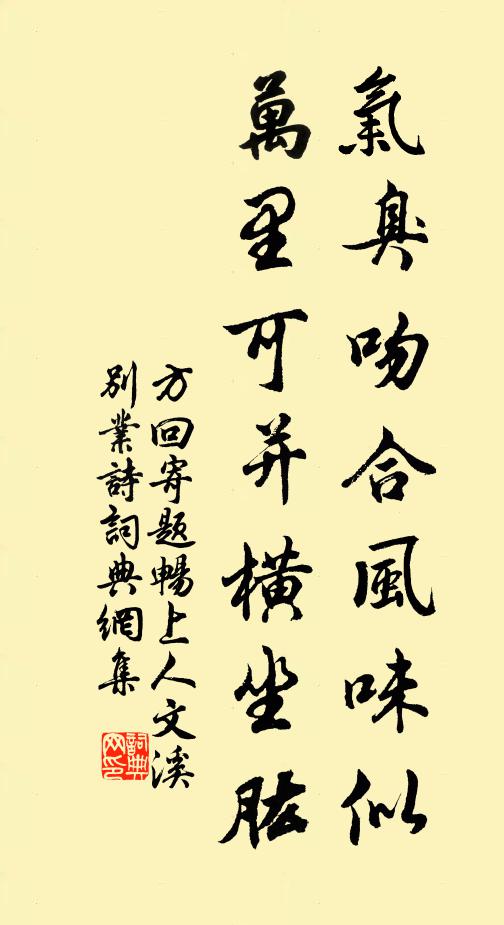 氣臭吻合風味似
萬里可并橫坐肱
方回寄題暢上人文溪
別業詩詞典網集
詞典網印